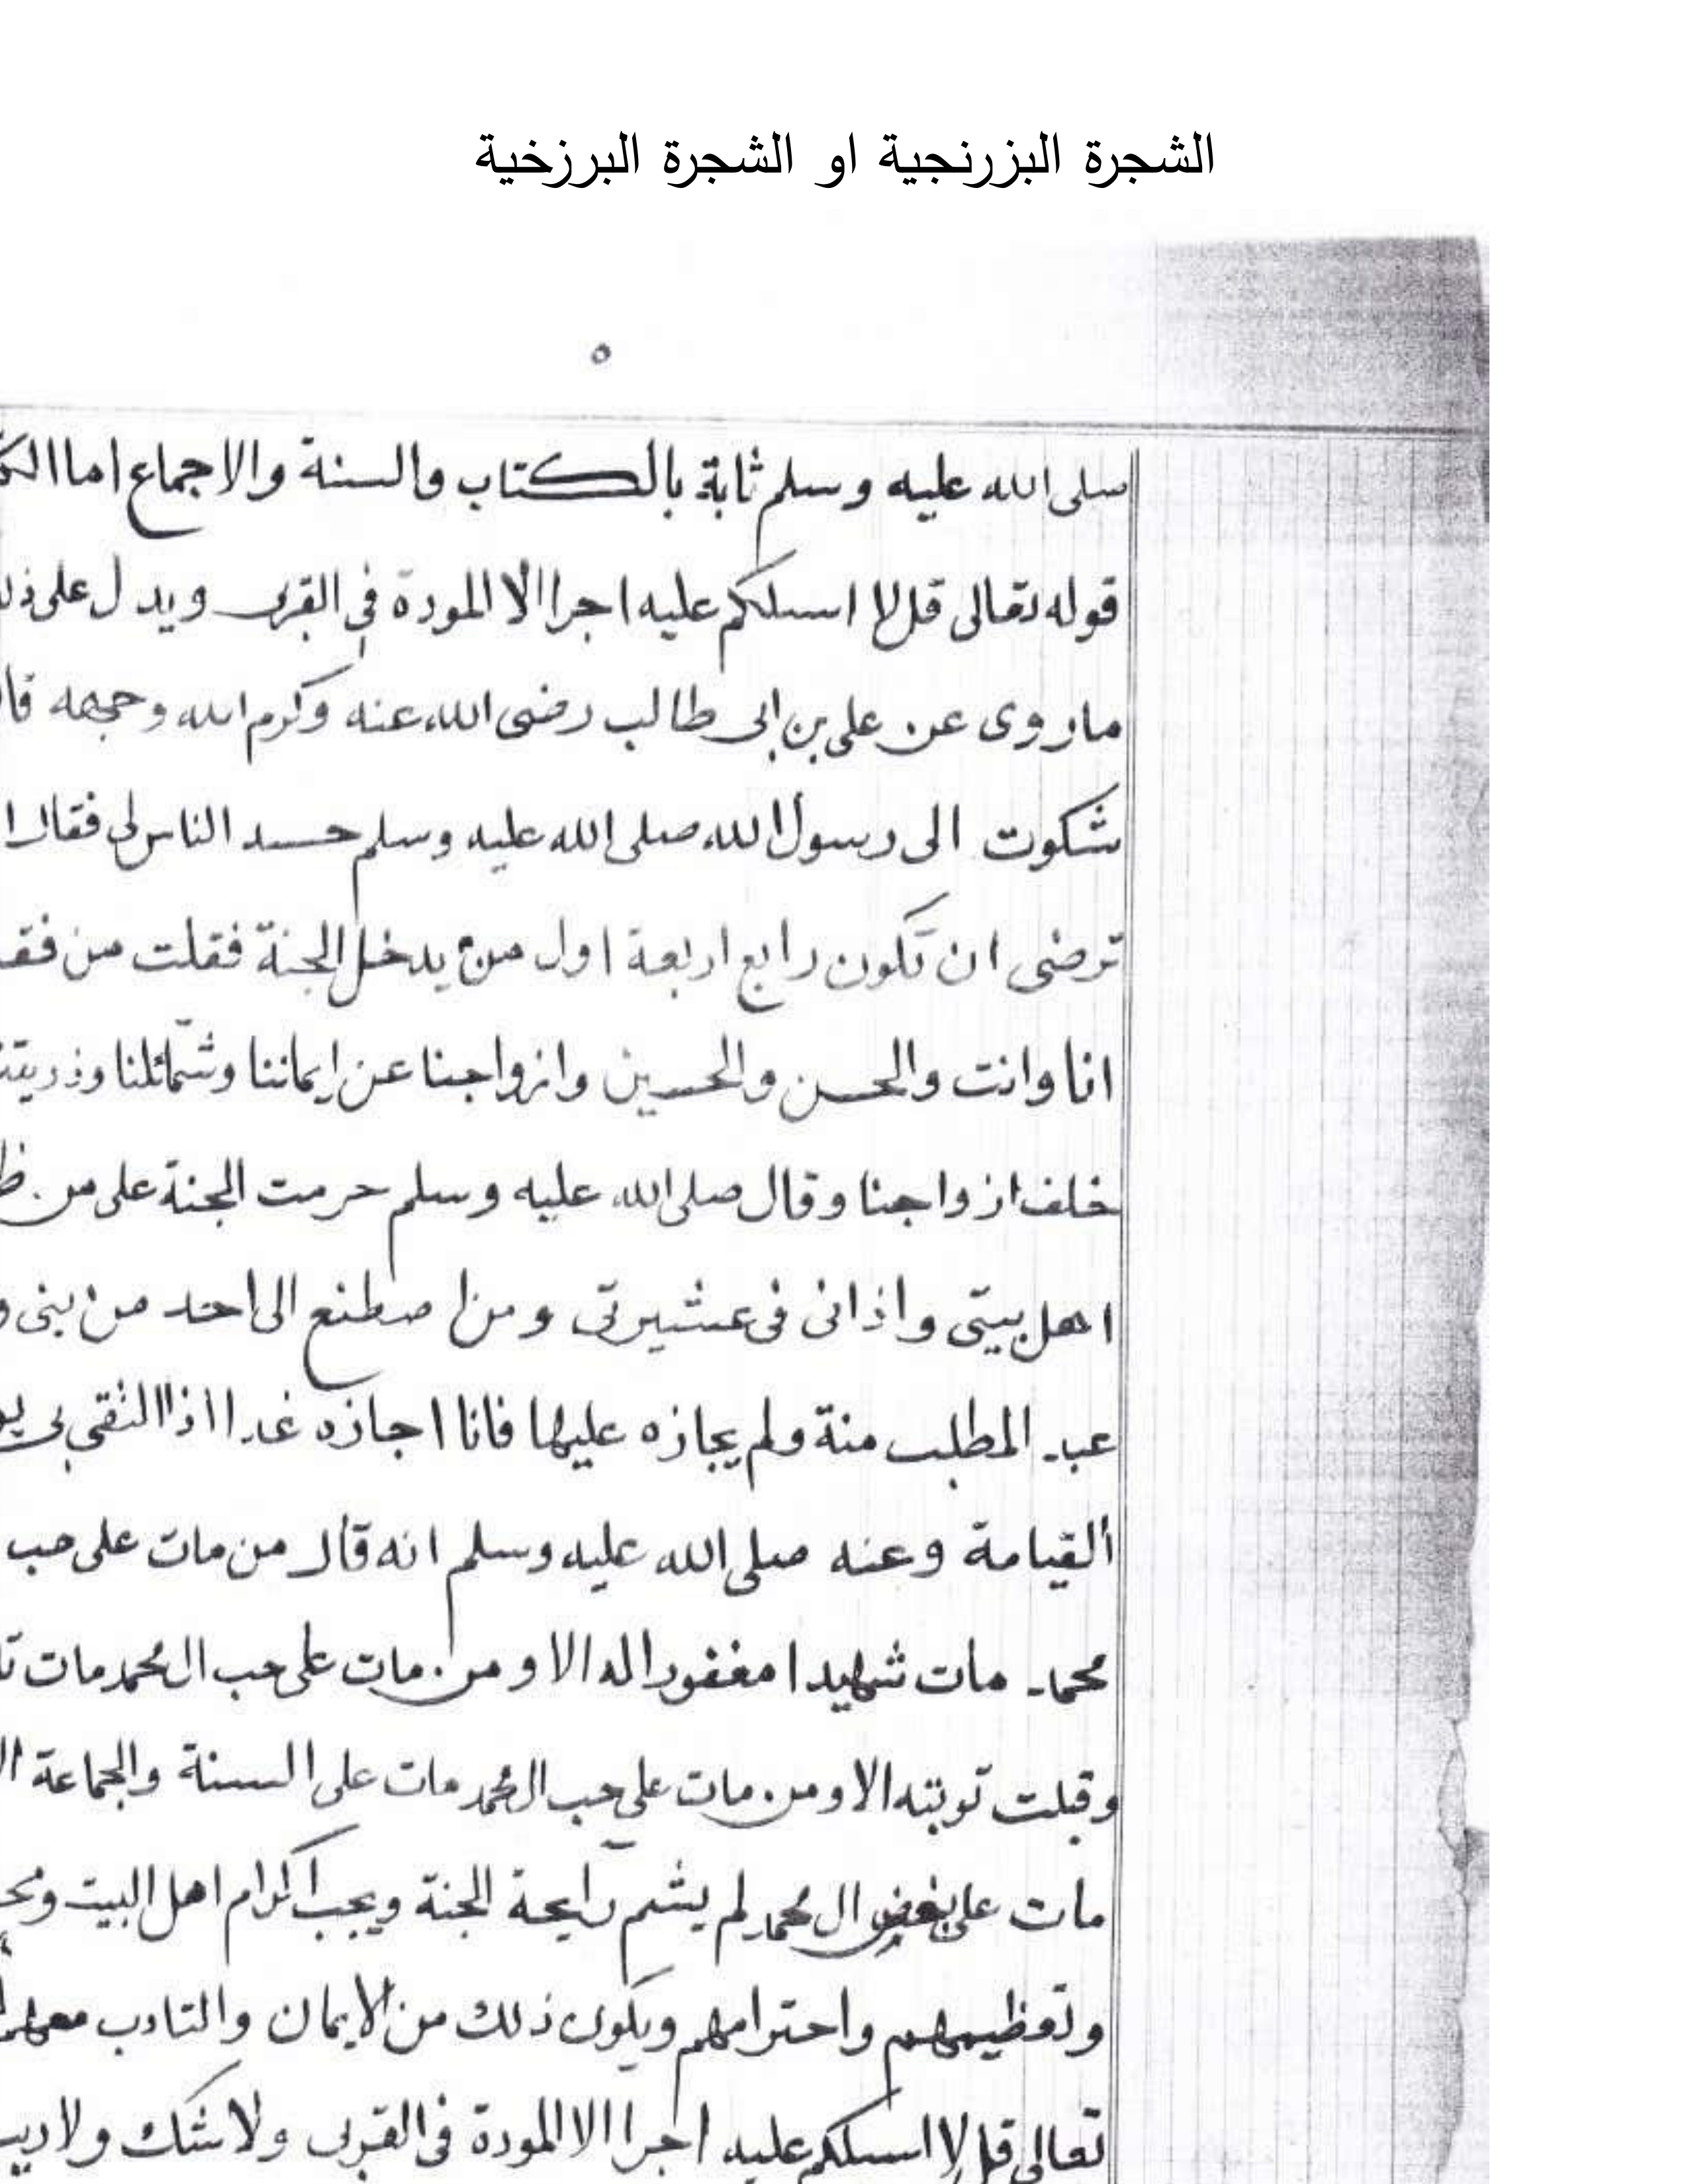 الشجرة البزرنجية او الشجرة البرزخية
٥
صلى الله عليه وسلم ثابة بالكتاب والسنة والاجماع اما
قوله تعالى قل لا اسلكم عليه اجرا الا المودة في القربى ويدل على
ماروى عن على بن ابى طالب رضى الله عنه وكرم الله وجهه
شكوت الى رسول الله صلى الله عليه وسلم حسد الناس لى فقال
ترضى ان تكون رابع اربعة اول من يدخل الجنة فقلت من
انا وانت والحسن والحسين وازواجنا عن ايماننا وشمائلنا
خلف ازواجنا وقال صلى الله عليه وسلم حرمت الجنة على من
اهل بيتى واذانى فى عشيرتى ومن اصطنع الى احد من بنى
عبد المطلب منة ولم يجازه عليها فانا اجازه غدا اذا التقى بى
القيامة وعنه صلى الله عليه وسلم انه قال من مات على حب
محمد مات شهيدا مغفورا له الا ومن مات على حب ال محمد مات
وقبلت توبته الا ومن مات على حب ال محمد مات على السنة والجماعة
مات على بغض ال محمد لم يشم رايحة الجنة ويجب اكرام اهل البيت
وتعظيمهم واحترامهم ويكون ذلك من الايمان والتادب معهم
تعالى قل لا اسلكم عليه اجرا الا المودة فى القربى ولا شك ولا ريب